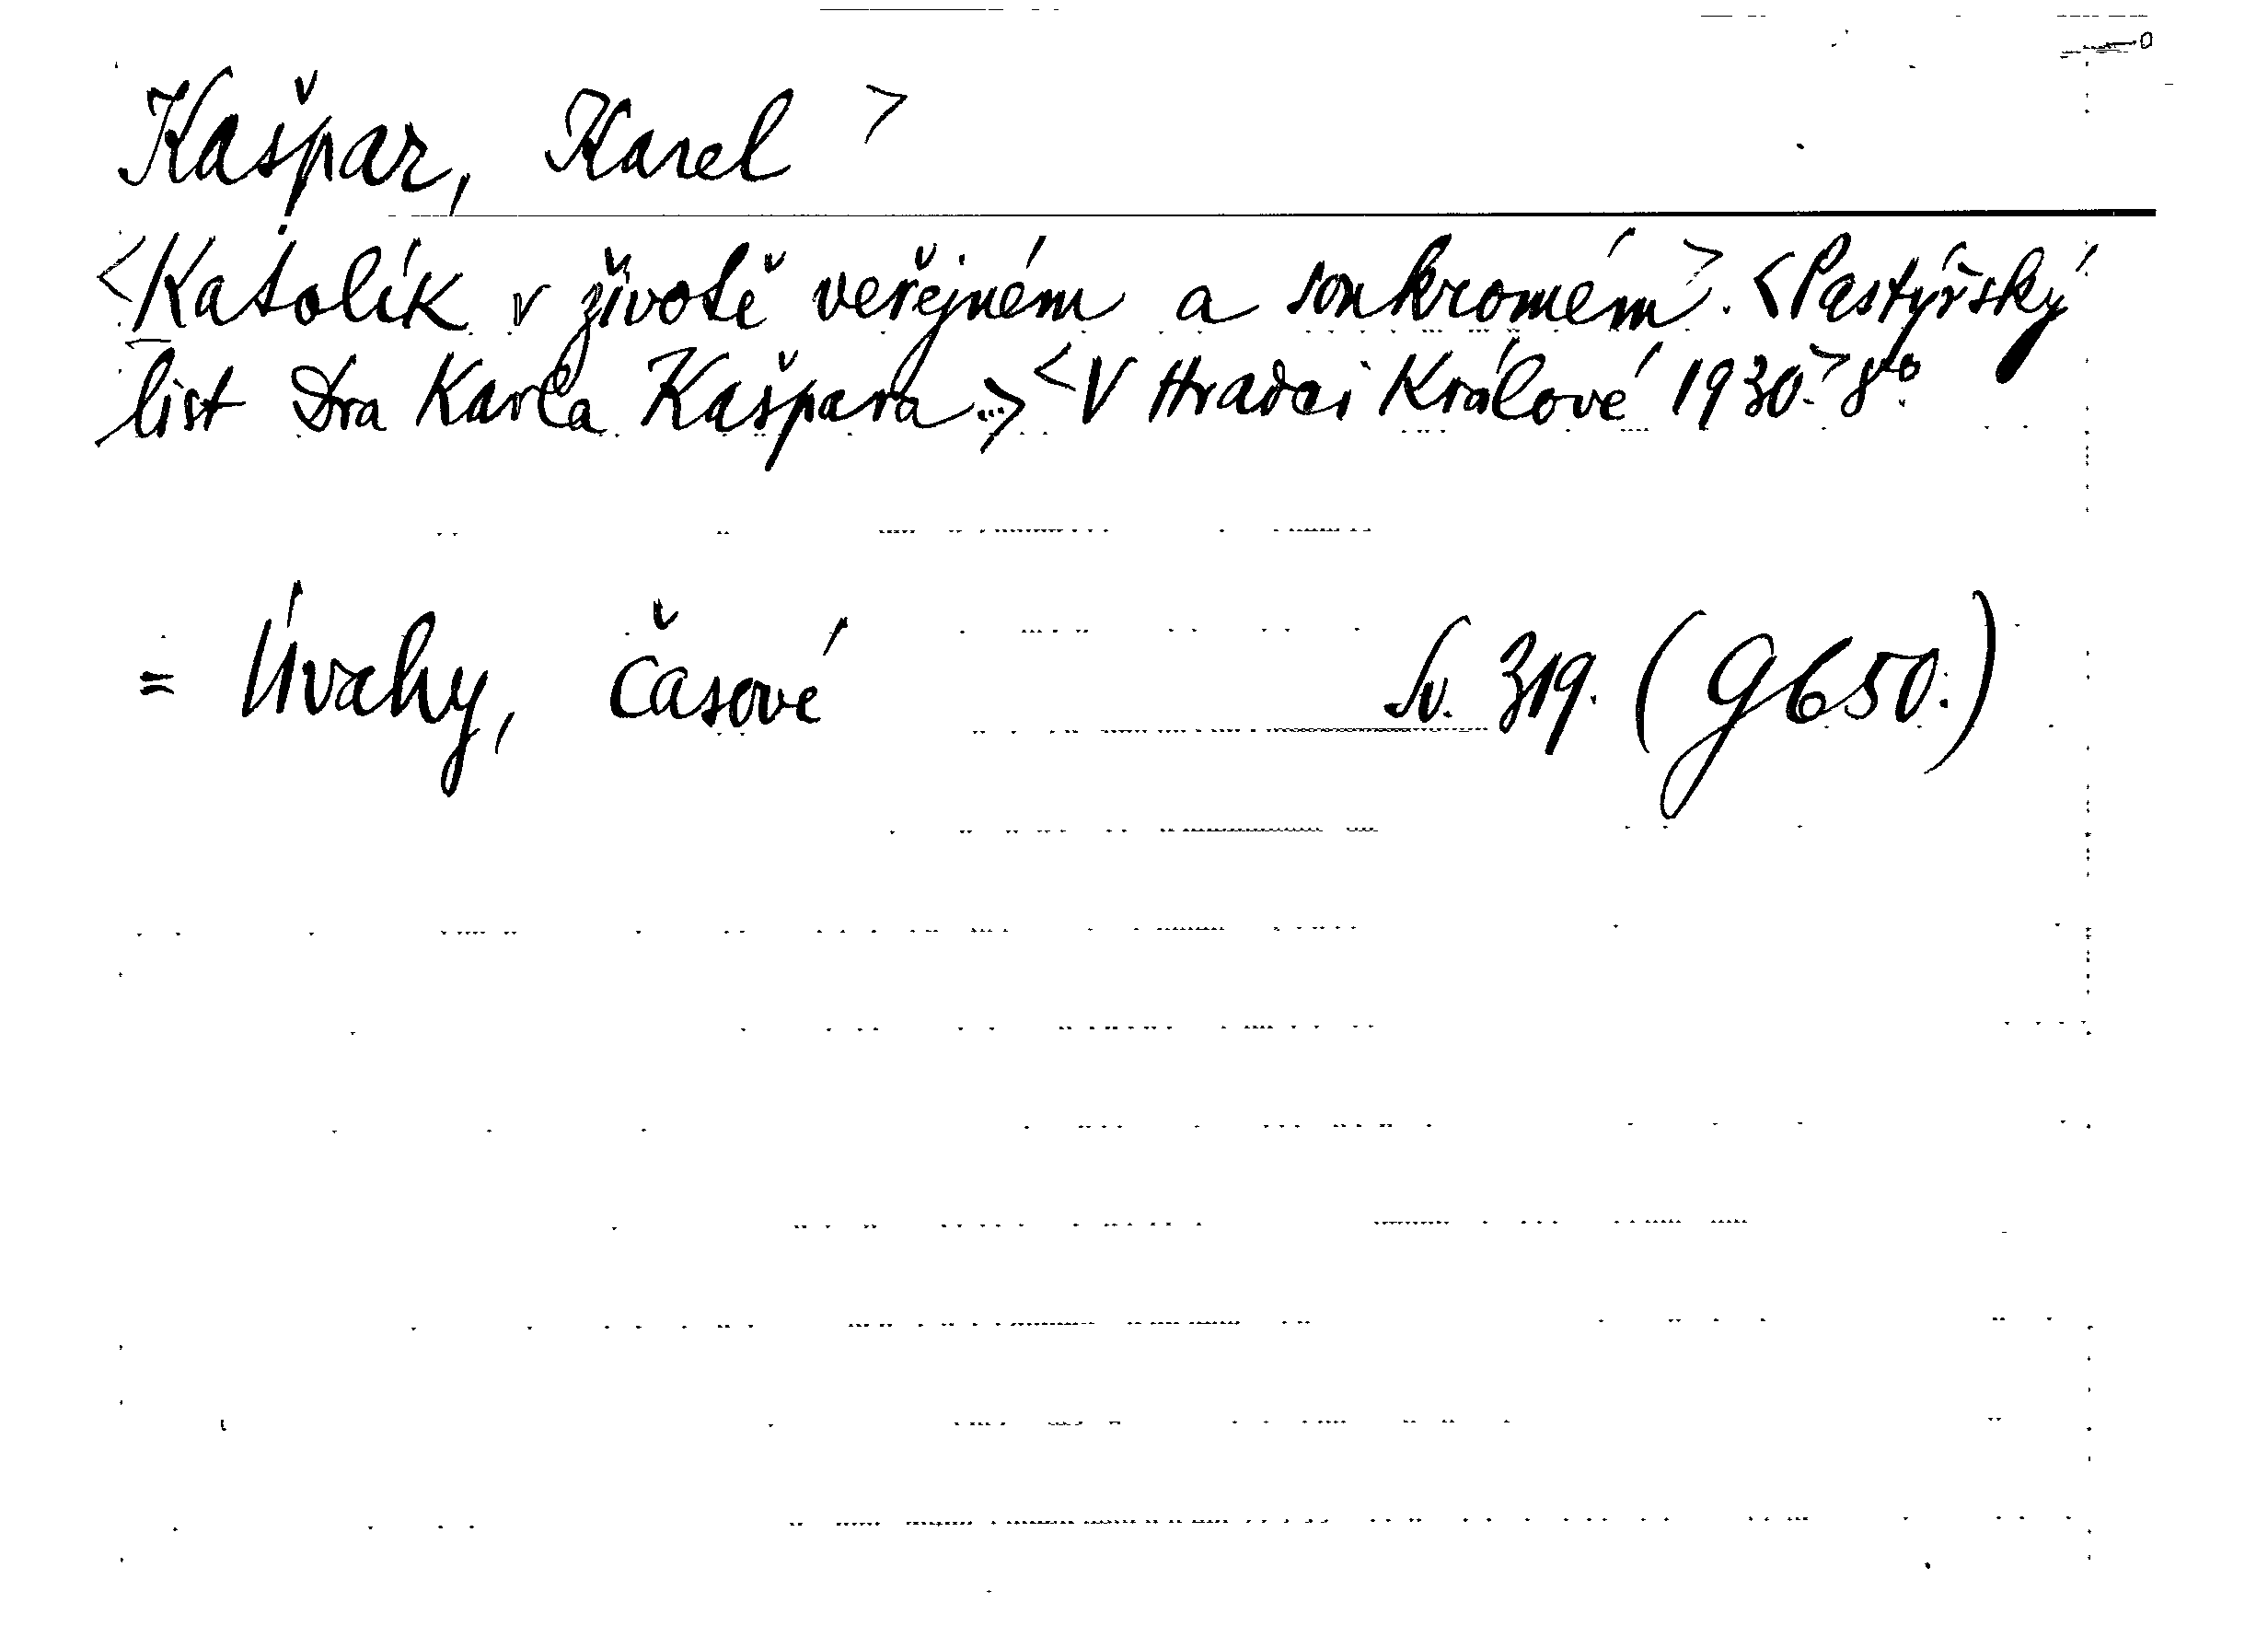 Kašpar, Karel >
<Katolík v životě veřejném a soukromém>. <Pastýřský
list Dra Karla Kašpara...> <V Hradci Králové 1930.> 8to.
= Úvahy, časové Sv. 319. (9650.)